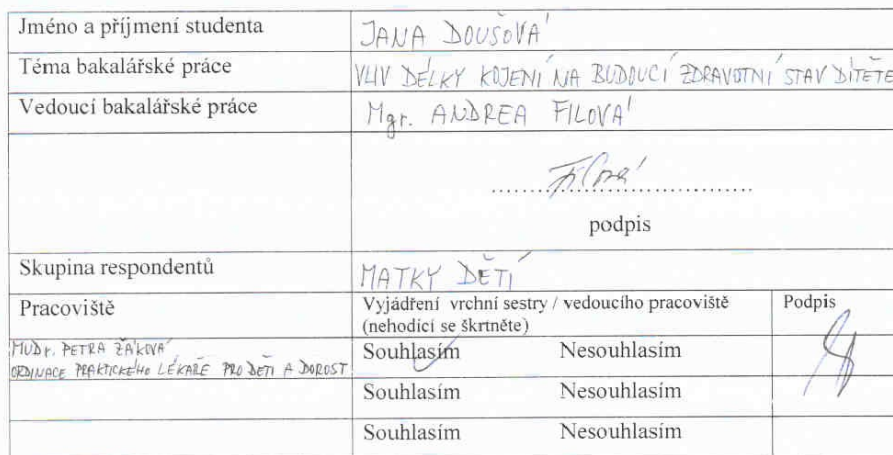 Jméno a příjmení studenta JANA DOUŠOVÁ
Téma bakalářské práce VLIV DÉLKY KOJENÍ NA BUDOUCÍ ZDRAVOTNÍ STAV DÍTĚTE
Vedoucí bakalářské práce Mgr. ANDREA FILOVÁ
Filová
podpis
Skupina respondentů MATKY DĚTÍ
Pracoviště Vyjádření vrchní sestry / vedoucího pracoviště Podpis
(nehodící se škrtněte)
MUDr. PETRA ŽÁKOVÁ
ORDINACE PRAKTICKÉHO LÉKAŘE PRO DĚTI A DOROST
Souhlasím Nesouhlasím
Souhlasím Nesouhlasím
Souhlasím Nesouhlasím